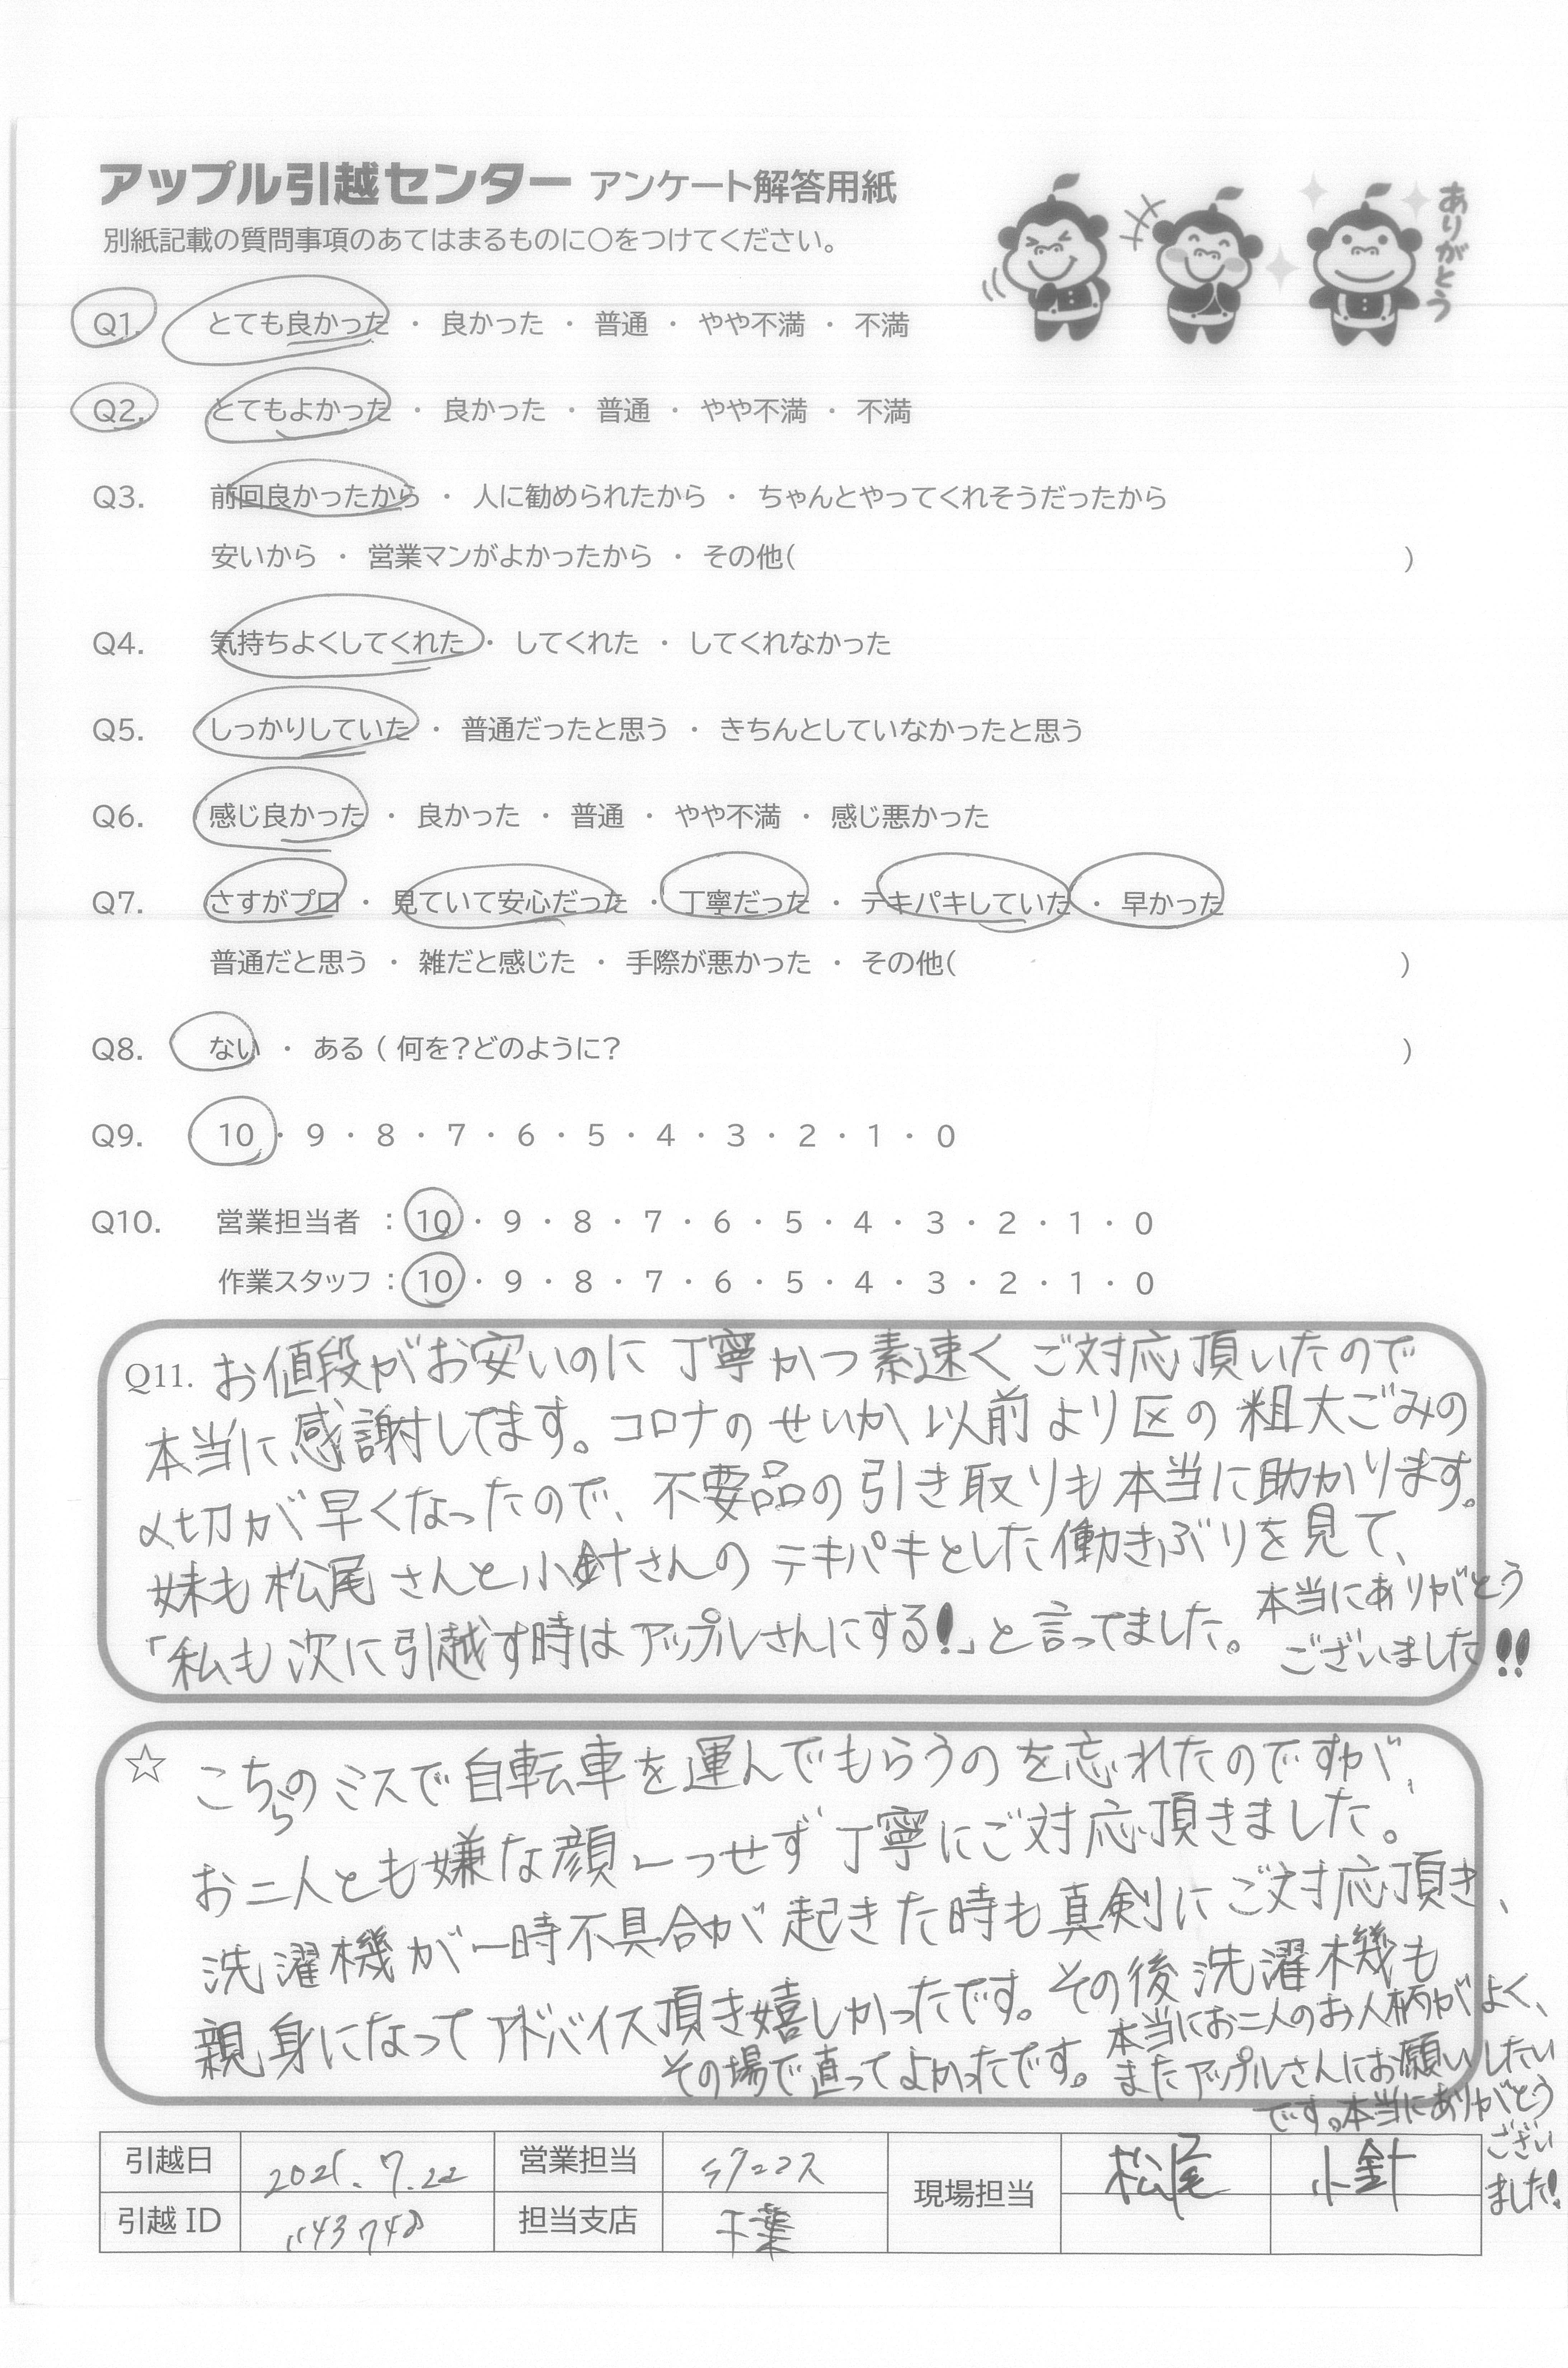 アップル引越センター アンケート解答用紙
別紙記載の質問事項のあてはまるものに○をつけてください。
ありがとう
Q1. とても良かった ・ 良かった ・ 普通 ・ やや不満 ・ 不満
Q2. とてもよかった ・ 良かった ・ 普通 ・ やや不満 ・ 不満
Q3. 前回良かったから ・ 人に勧められたから ・ ちゃんとやってくれそうだったから
安いから ・ 営業マンがよかったから ・ その他( )
Q4. 気持ちよくしてくれた ・ してくれた ・ してくれなかった
Q5. しっかりしていた ・ 普通だったと思う ・ きちんとしていなかったと思う
Q6. 感じ良かった ・ 良かった ・ 普通 ・ やや不満 ・ 感じ悪かった
Q7. さすがプロ ・ 見ていて安心だった ・ 丁寧だった ・ テキパキしていた ・ 早かった
普通だと思う ・ 雑だと感じた ・ 手際が悪かった ・ その他( )
Q8. ない ・ ある ( 何を？どのように？ )
Q9. 10 ・ 9 ・ 8 ・ 7 ・ 6 ・ 5 ・ 4 ・ 3 ・ 2 ・ 1 ・ 0
Q10. 営業担当者 : 10 ・ 9 ・ 8 ・ 7 ・ 6 ・ 5 ・ 4 ・ 3 ・ 2 ・ 1 ・ 0
作業スタッフ : 10 ・ 9 ・ 8 ・ 7 ・ 6 ・ 5 ・ 4 ・ 3 ・ 2 ・ 1 ・ 0
Q11. お値段がお安いのに丁寧かつ素速くご対応頂いたので
本当に感謝してます。コロナのせいか以前より区の粗大ごみの
〆切が早くなったので、不要品の引き取りも本当に助かります。
妹も松尾さんと小針さんのテキパキとした働きぶりを見て、
「私も次に引越す時はアップルさんにする!」と言ってました。
本当にありがとう
ございました!!
☆ こちらのミスで自転車を運んでもらうのを忘れたのですが、
お二人とも嫌な顔一つせず丁寧にご対応頂きました。
洗濯機が一時不具合が起きた時も真剣にご対応頂き、
親身になってアドバイス頂き嬉しかったです。その後洗濯機も
その場で直ってよかったです。
本当にお二人のお人柄がよく、
またアップルさんにお願いしたい
です。本当にありがとう
ござい
ました!
引越日 営業担当 現場担当 松尾 小針
引越 ID 担当支店 千葉